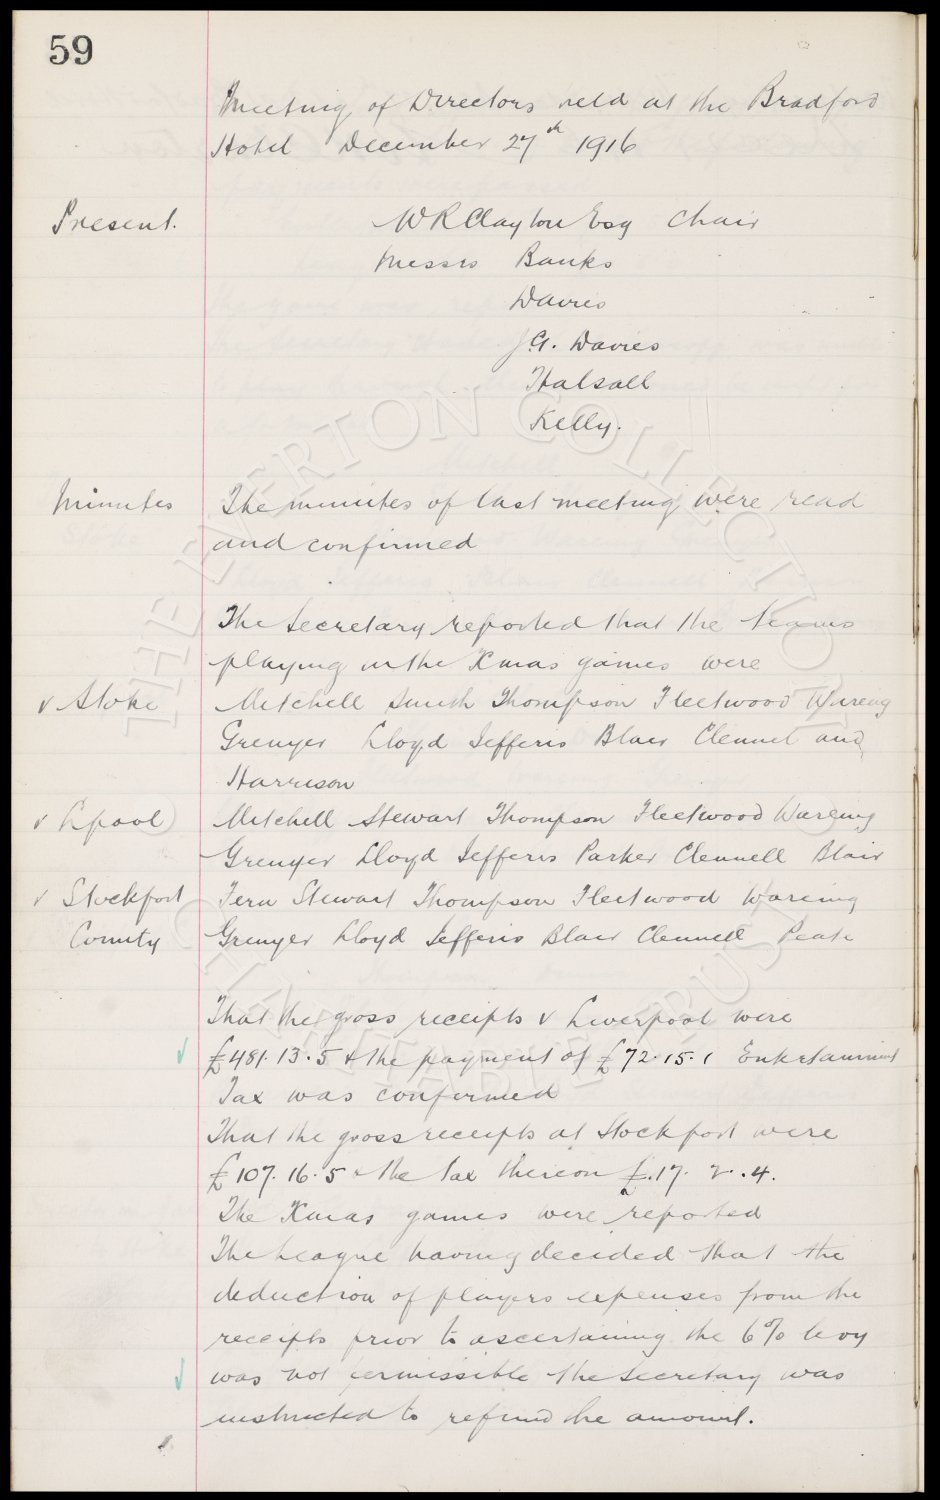 59
Meeting of Directors held at the Bradford
Hotel December 27th 1916
Present. W R Clayton Esq Chair
Messrs Banks
Davies
J.G. Davies
Halsall
Kelly.
Minutes The minutes of last meeting were read
and confirmed
The Secretary reported that the teams
playing in the Xmas games were
v Stoke Mitchell Smith Thompson Fleetwood Wareing
Grenyer Lloyd Jefferis Blair Clennel and
Harrison
v Lpool Mitchell Stewart Thompson Fleetwood Wareing
Grenyer Lloyd Jefferis Parker Clennell Blair
v Stockport Fern Stewart Thompson Fleetwood Wareing
County Grenyer Lloyd Jefferis Blair Clennell Peate
That the gross receipts v Liverpool were
£481.13.5 & the payment of £72.15.1 Entertainment
Tax was confirmed
That the gross receipts at Stockport were
£107.16.5 & the tax thereon £.17. 2.4.
The Xmas games were reported
The League having decided that the
deduction of players expenses from the
receipts prior to ascertaining the 6% levy
was not permissible the Secretary was
instructed to refund the amount.
THE EVERTON COLLECTION
CHARITABLE TRUST